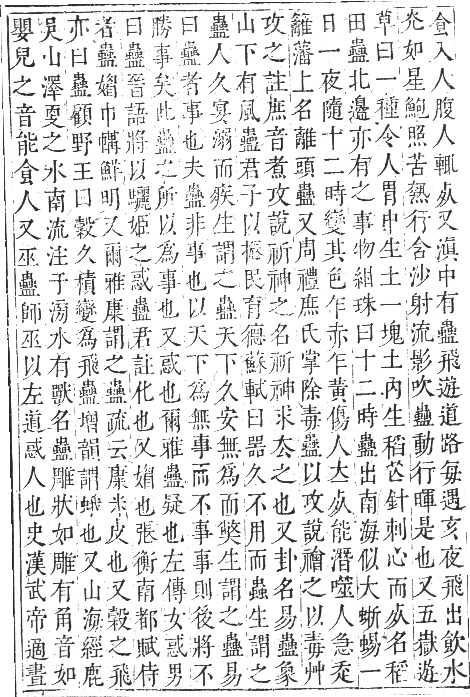 食入人腹人輒死又滇中有蠱飛遊道路每遇亥夜飛出飲水
炛如星鮑照苦熱行含沙射流影吹蠱動行暉是也又五嶽遊
草曰一種令人胃中生土一塊土內生稻芒針刺心而死名稻
田蠱北邊亦有之事物紺珠曰十二時蠱出南海似大蜥蜴一
日一夜隨十二時變其色乍赤乍黃傷人立死能潛噬人急走
籬藩上名離頭蠱又周禮庶氏掌除毒蠱以攻說禬之以毒艸
攻之註庶音煮攻說祈神之名祈神求去之也又卦名易蠱象
山下有風蠱君子以振民育德蘇軾曰器久不用而蟲生謂之
蠱人久宴溺而疾生謂之蠱天下久安無為而弊生謂之蠱易
曰蠱者事也夫蠱非事也以天下為無事而不事事則後將不
勝事矣此蠱之所以為事也又惑也爾雅蠱疑也左傳女惑男
曰蠱晉語將以驪姬之惑蠱君註化也又媚也張衡南都賦侍
者蠱媚巾幗鮮明又爾雅康謂之蠱疏云康米皮也又穀之飛
亦曰蠱顧野王曰穀久積變為飛蠱增韻謂蛾也又山海經鹿
吳山澤更之水南流注于滂水有獸名蠱雕狀如雕有角音如
嬰兒之音能食人又巫蠱師巫以左道惑人也史漢武帝適晝